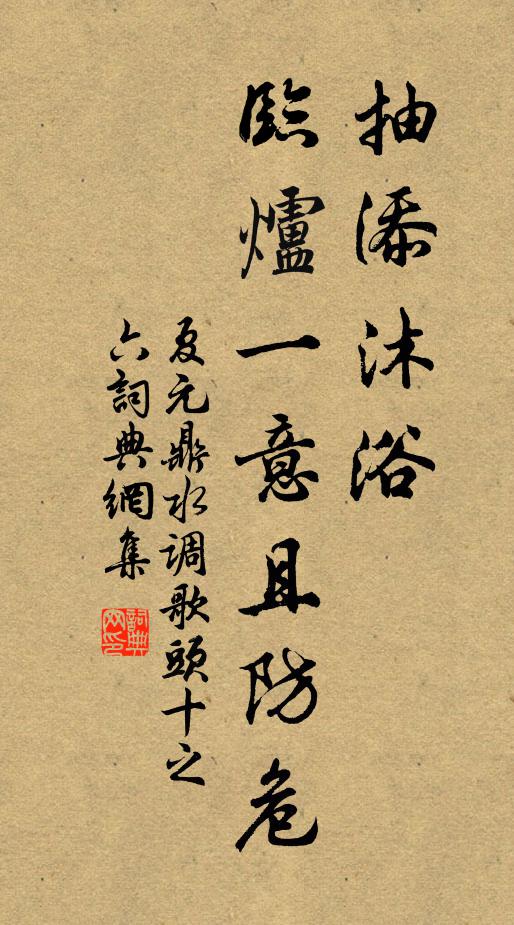 抽添沐浴
臨爐一意且防危
夏元鼎水調歌頭十之
六詞典網集
詞典
网印